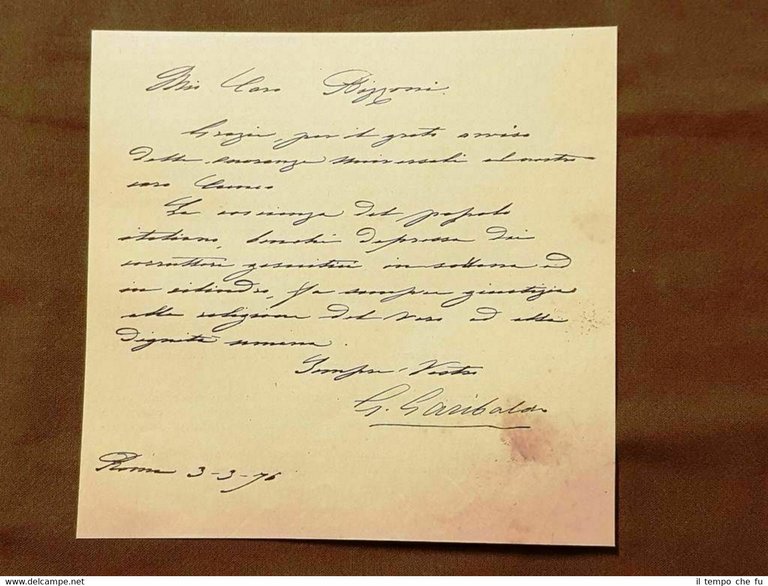 Mio Caro Bizzoni.
Grazie, per il grato avviso
delle onoranze universali al nostro
caro Cuneo
La coscienza del popolo
italiano, benchè depressa dai
corruttori gesuitici in sottana ed
in cilindro, fa sempre giustizia
alla religione del Vero ed alla
dignità umana.
Sempre Vostro
G. Garibaldi
Roma 3-3-76
il tempo che fu